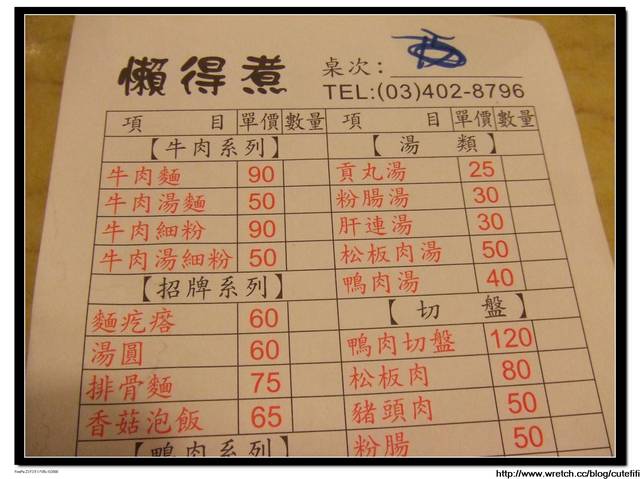 懶得煮
桌次：
TEL:(03)402-8796
項 目 單價 數量
【牛肉系列】
牛肉麵 90
牛肉湯麵 50
牛肉細粉 90
牛肉湯細粉 50
【招牌系列】
麵疙瘩 60
湯圓 60
排骨麵 75
香菇泡飯 65
【鴨肉系列】
項 目 單價 數量
【湯 類】
貢丸湯 25
粉腸湯 30
肝連湯 30
松板肉湯 50
鴨肉湯 40
【切 盤】
鴨肉切盤 120
松板肉 80
豬頭肉 50
粉腸 50
http://www.wretch.cc/blog/cutefifi